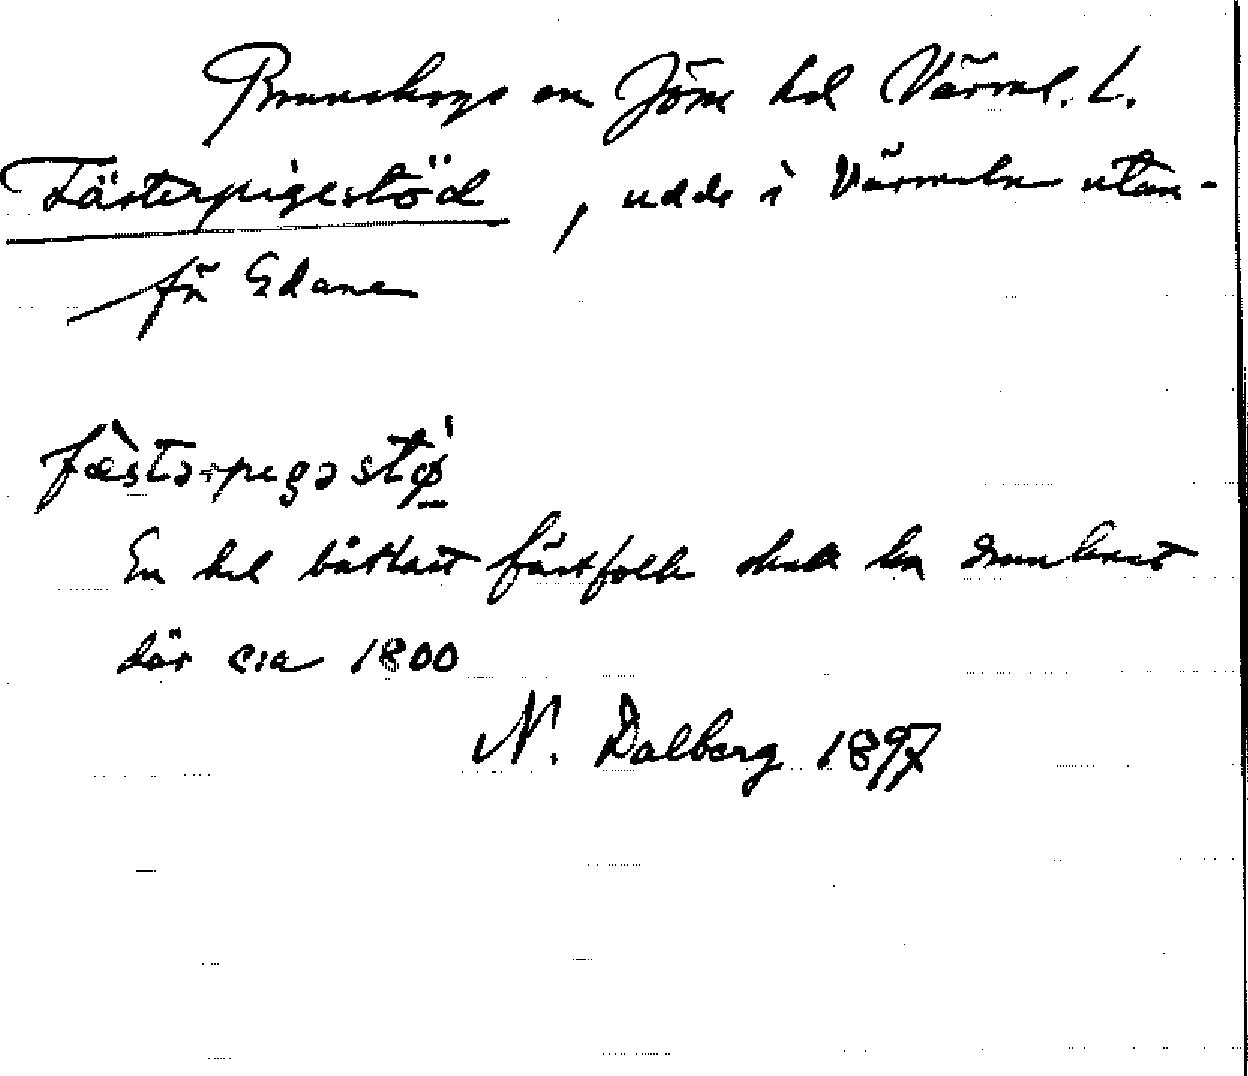 Brunskogs sn Jösse hd Värml. L.
Fästerpigestöd, udde i Värmeln utan-
för Edane
fæ̀stə-pegəstø̀
En del båtlast fästfolk skall ha drunknat
där c:a 1800
N. Dalberg 1897